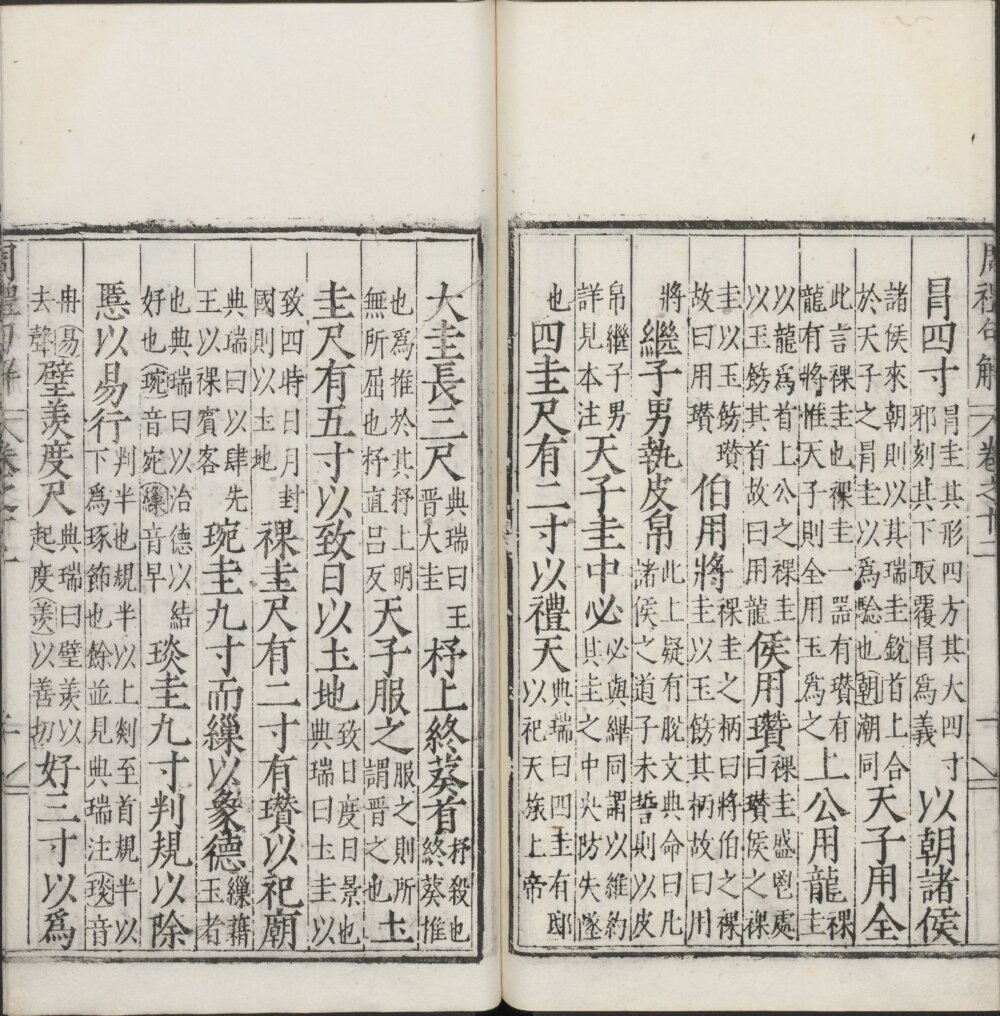 周禮句解 卷之十二
冐四寸冐圭其形四方其大四寸邪刻其下取覆冐爲義以朝諸侯
諸侯來朝則以其瑞圭銳首上合於天子之冐圭以爲騐也朝潮同天子用全
此言祼圭也祼圭一器有瓚有龍有將惟天子則全用玉爲之上公用龍祼圭
以龍爲首上公之祼圭以玉飾其首故曰用龍侯用瓚祼圭盛鬯處曰瓚侯之祼
圭以玉飾瓚故曰用瓚伯用將祼圭之柄曰將伯之祼圭以玉飾其柄故曰用
將繼子男執皮帛此上疑有脫文典命曰凡諸侯之道子未誓則以皮
帛繼子男詳見本注天子圭中必必與縪同謂以維約其圭之中央防失墜
也四圭尺有二寸以禮天典瑞曰四圭有邸以祀天旅上帝
大圭長三尺典瑞曰王晉大圭杼上終葵首杼殺也終葵推
也爲推於其杼上明無所屈也杼直呂反天子服之服之則所謂晉之也土
圭尺有五寸以致日以土地致日度日景也典瑞曰土圭以
致四時日月封國則以土地祼圭尺有二寸有瓚以祀廟
典瑞曰以肆先王以祼賓客琬圭九寸而繅以象德繅藉玉者
也典瑞曰以治德以結好也琬音宛繅音早琰圭九寸判規以除
慝以易行判半也規半以上剡至首規半以下爲琢飾也餘並見典瑞注琰音
冉易去聲璧羨度尺典瑞曰璧羨以起度羨以善切好三寸以爲